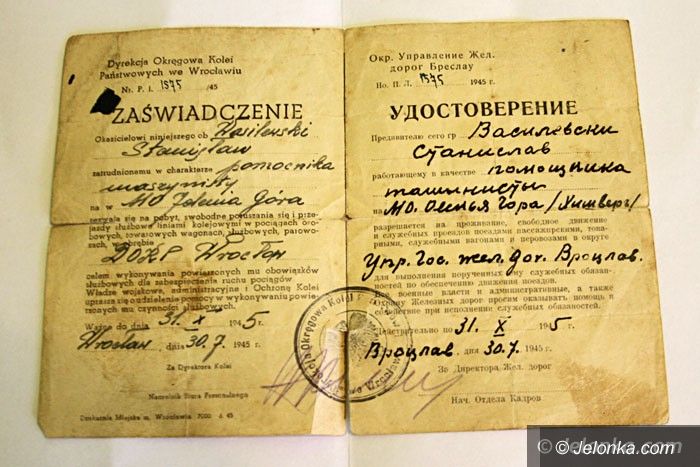 Dyrekcja Okręgowa Kolei
Państwowych we Wrocławiu
Nr. P. I. 1575 /45
ZAŚWIADCZENIE
Okazicielowi niniejszego ob Wasilewski
Stanisław
zatrudnionemu w charakterze pomocnika
maszynisty
na w MO Jelenia Góra
zezwala się na pobyt, swobodne poruszania się i przejazdy
służbowe liniami kolejowymi w pociągach osobowych,
towarowych wagonach, służbowych, parowozach,
w obrębie
DOKP Wrocław
celem wykonywania powierzonych mu obowiązków
służbowych dla zabezpieczenia ruchu pociągów
Władze wojskowe, administracyjne i Ochronę Kolei
uprasza się o udzielenie pomocy w wykonywaniu powierzonych
mu czynności służbowych.
Ważne do dnia 31. X 1945
Wrocław dnia 30.7 1945 r.
Za Dyrektora Kolei
Naczelnik Biura Personalnego
Drukarnia Miejska m. Wrocławia 7000 6 45
Окр. Управление Жел.
дорог Бреслау
Но. П. Л. 1575 1945 г.
УДОСТОВЕРЕНИЕ
Предъявителю сего гр Василевски
Станислав
работающему в качестве помощника
машинисты
на МО. Оленья Гора /Хишберг/
разрешается на проживание, свободное движение
и служебных проездов поездами пассажирскими, товарными,
служебными вагонами и перовозами в округе
Упр. Гос. жел. дог. Вроцлав.
для выполнения порученных ему служебных обязанностей
по обеспечению движения поездов.
Все военные власти и административные, а также
Охрану Железных дорог просим оказывать помощь и
содействие при исполнении служебных обязанностей.
Действительно по 31. X 1945 г.
Вроцлав. дня 30.7. 1945 г.
За Директора Жел. дорог
Нач. Отдела Кадров
© Jelonka.com